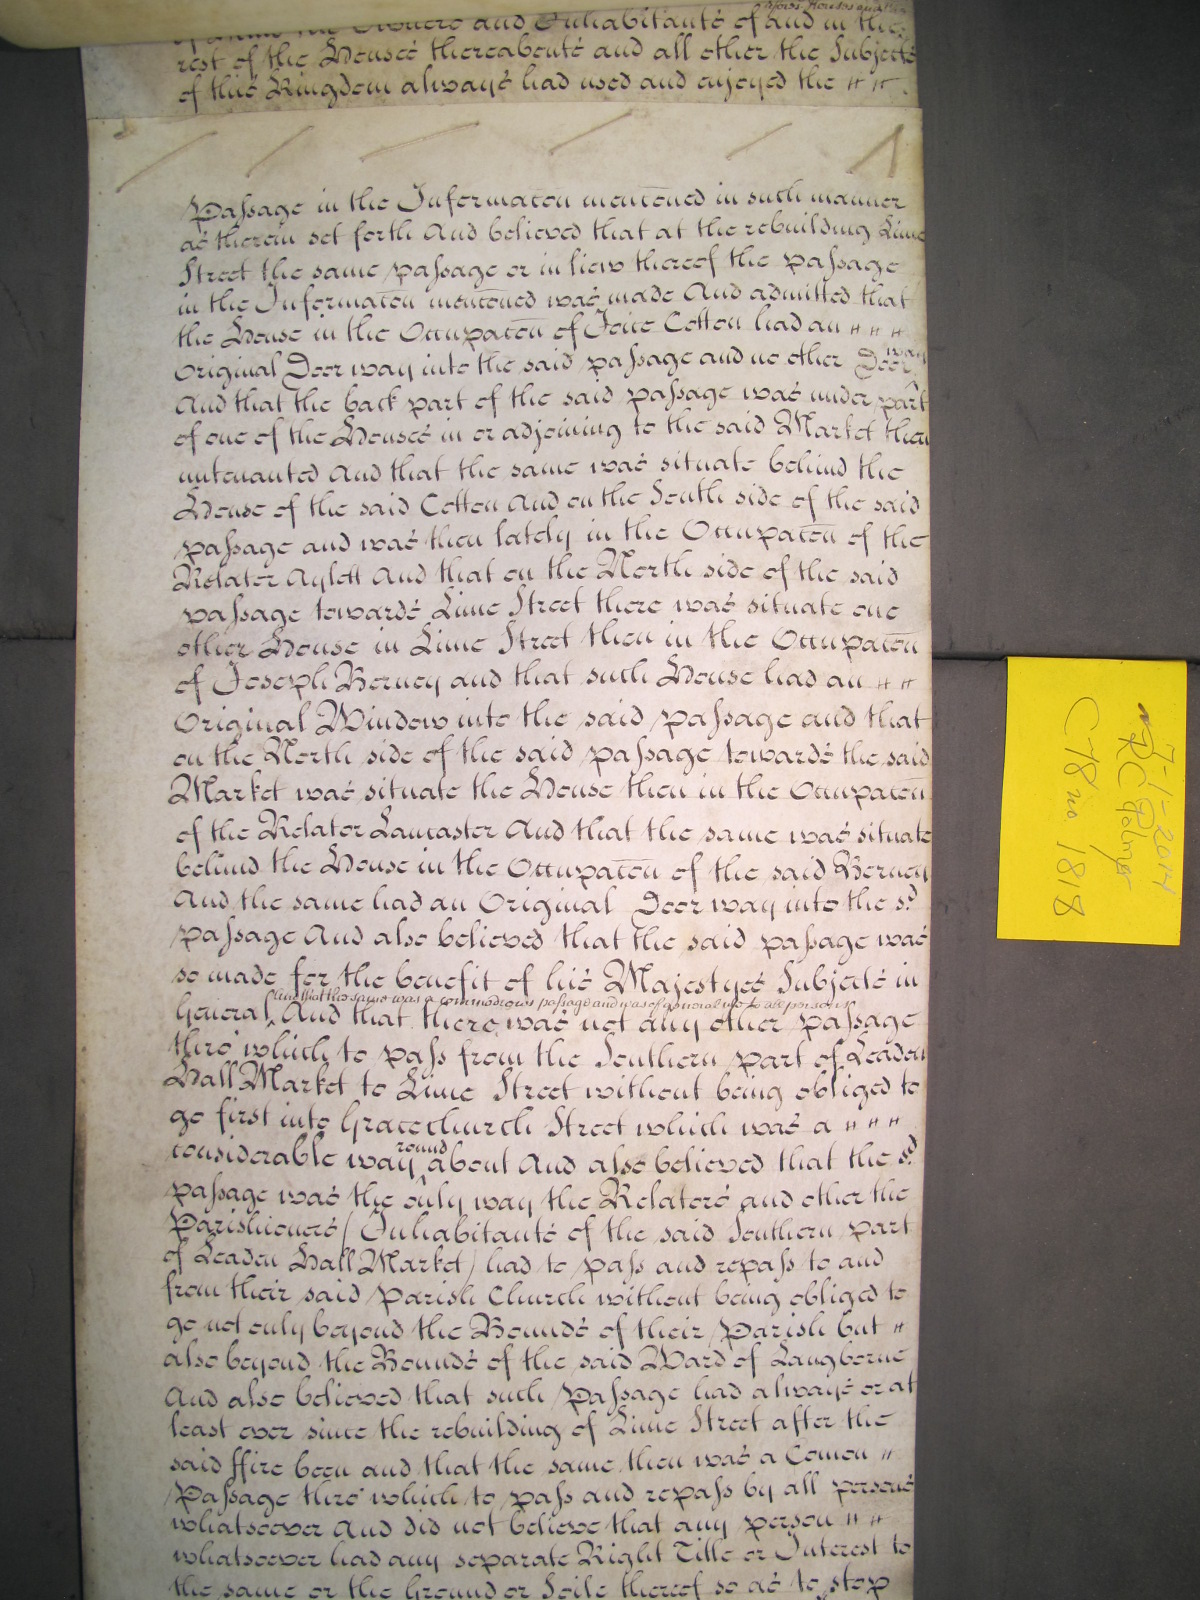 Owners and Inhabitants of and in the
rest of the Houses thereabouts and all other the Subjects
of this Kingdom always had used and enjoyed the " "
Passage in the Informac̄on menc̄oned in such manner
as therein set forth And believed that at the rebuilding Lime
Street the same passage or in liew thereof the passage
in the Informac̄on menc̄oned was made And admitted that
the House in the Occupac̄on of Joice Cotton had an " " "
Original Door way into the said passage and no other Door way
And that the back part of the said passage was under part
of one of the Houses in or adjoining to the said Market then
untenanted And that the same was situate behind the
House of the said Cotton And on the South side of the said
passage and was then lately in the Occupac̄on of the
Relator Aylett And that on the North side of the said
passage towards Lime Street there was situate one
other House in Lime Street then in the Occupac̄on
of Joseph Berney and that such House had an " "
Original Window into the said passage and that
on the North side of the said passage towards the said
Market was situate the House then in the Occupac̄on
of the Relator Lancaster And that the same was situate
behind the House in the Occupac̄on of the said Berney
And the same had an Original Door way into the sd
passage And also believed that the said passage was
so made for the benefit of his Majestyes Subjects in
And that the same was a commodious passage and was of general use to all persons
General And that there was not any other passage
thro' which to pass from the Southern part of Leaden
Hall Market to Lime Street without being obliged to
go first into Gracechurch Street which was a " " "
considerable way round about And also believed that the sd
passage was the only way the Relators and other the
Parishioners (Inhabitants of the said Southern part
of Leaden Hall Market) had to pass and repass to and
from their said Parish Church without being obliged to
go not only beyond the Bounds of their Parish but "
also beyond the Bounds of the said Ward of Langborne
And also believed that such Passage had always or at
least ever since the rebuilding of Lime Street after the
said ffire been and that the same then was a Comon "
Passage thro' which to pass and repass by all persons
whatsoever And did not believe that any person " "
whatsoever had any separate Right Title or Interest to
the same or the Ground or Soile thereof so as to stop
7-1-2014
RC Palmer
C78 no. 1818